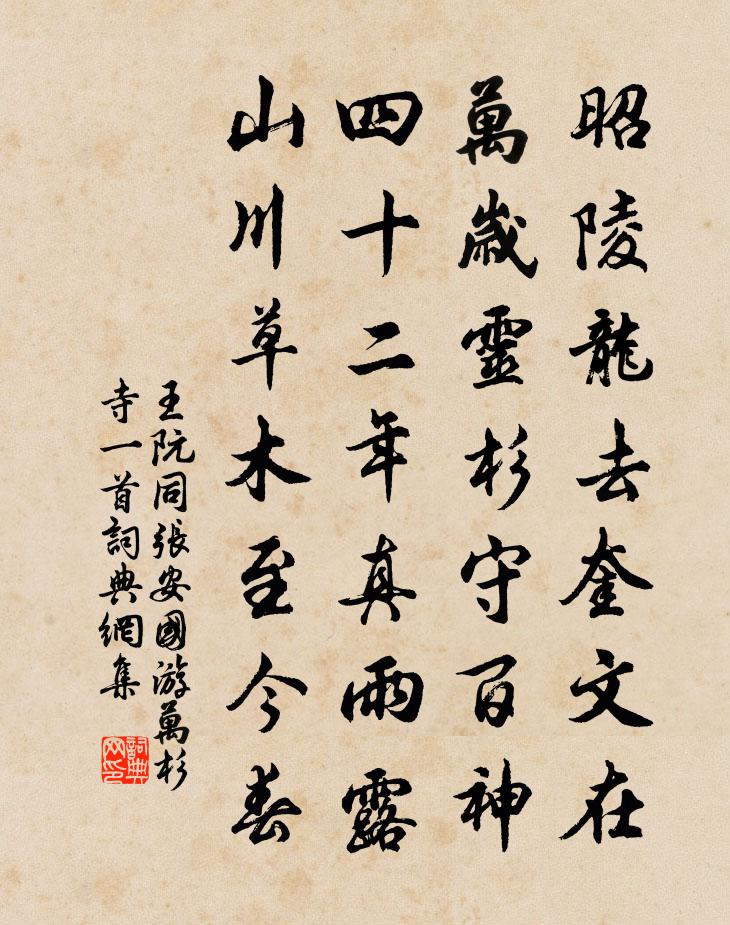 昭陵龍去奎文在
萬歲靈杉守百神
四十二年真雨露
山川草木至今春
王阮同張安國游萬杉
寺一首詞典網集
詞典
网印